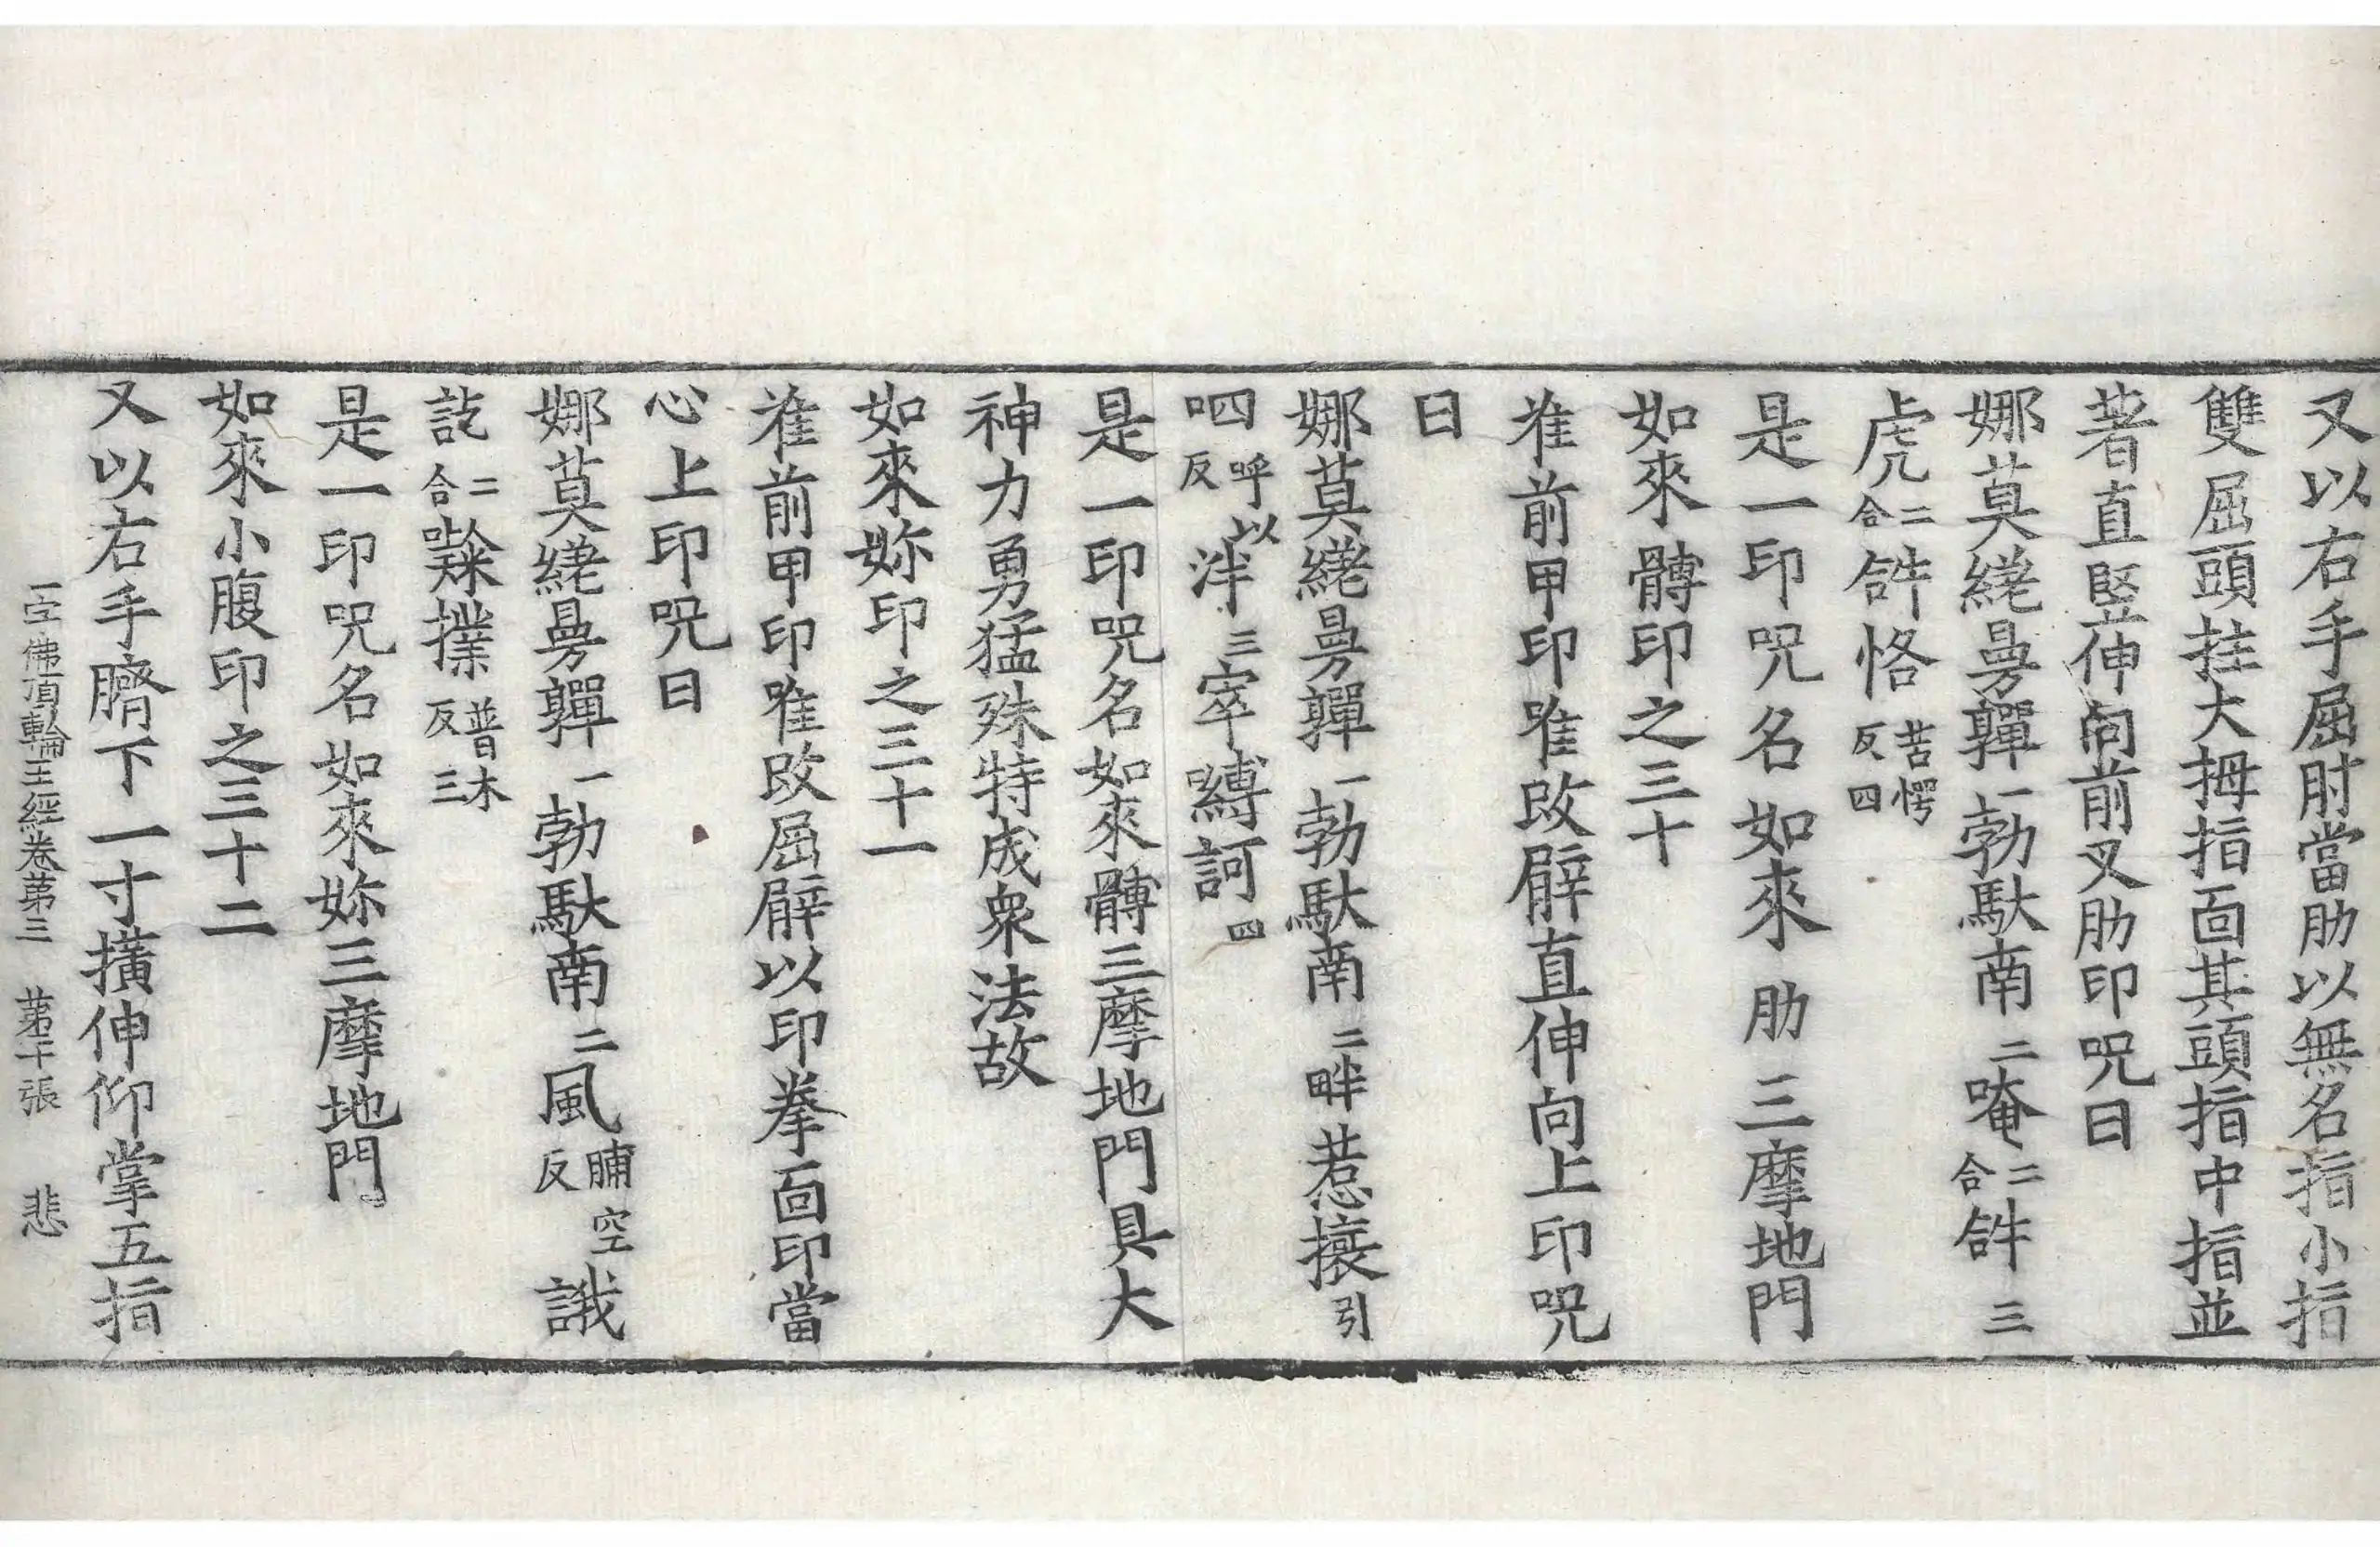 又以右手屈肘當肋以無名指小指
雙屈頭拄大拇指面其頭指中指並
著直竪伸向前叉肋印呪曰
娜莫繞曼彈一勃馱南二唵二合䛗三
虎二合䛗恪苦愕反四
是一印呪名如來肋三摩地門
如來髆印之三十
准前甲印唯改臂直伸向上印呪
曰
娜莫繞曼彈一勃馱南二畔惹攘引
呬呼以反泮三窣縛訶四
是一印呪名如來髆三摩地門具大
神力勇猛殊特成衆法故
如來妳印之三十一
准前甲印唯改屈臂以印拳面印當
心上印呪曰
娜莫繞曼彈一勃馱南二風脯空反誐
訖二合𡃤撲普木反三
是一印呪名如來妳三摩地門
如來小腹印之三十二
又以右手臍下一寸擴伸仰掌五指
一字佛頂輪王經卷第三 第十張 悲